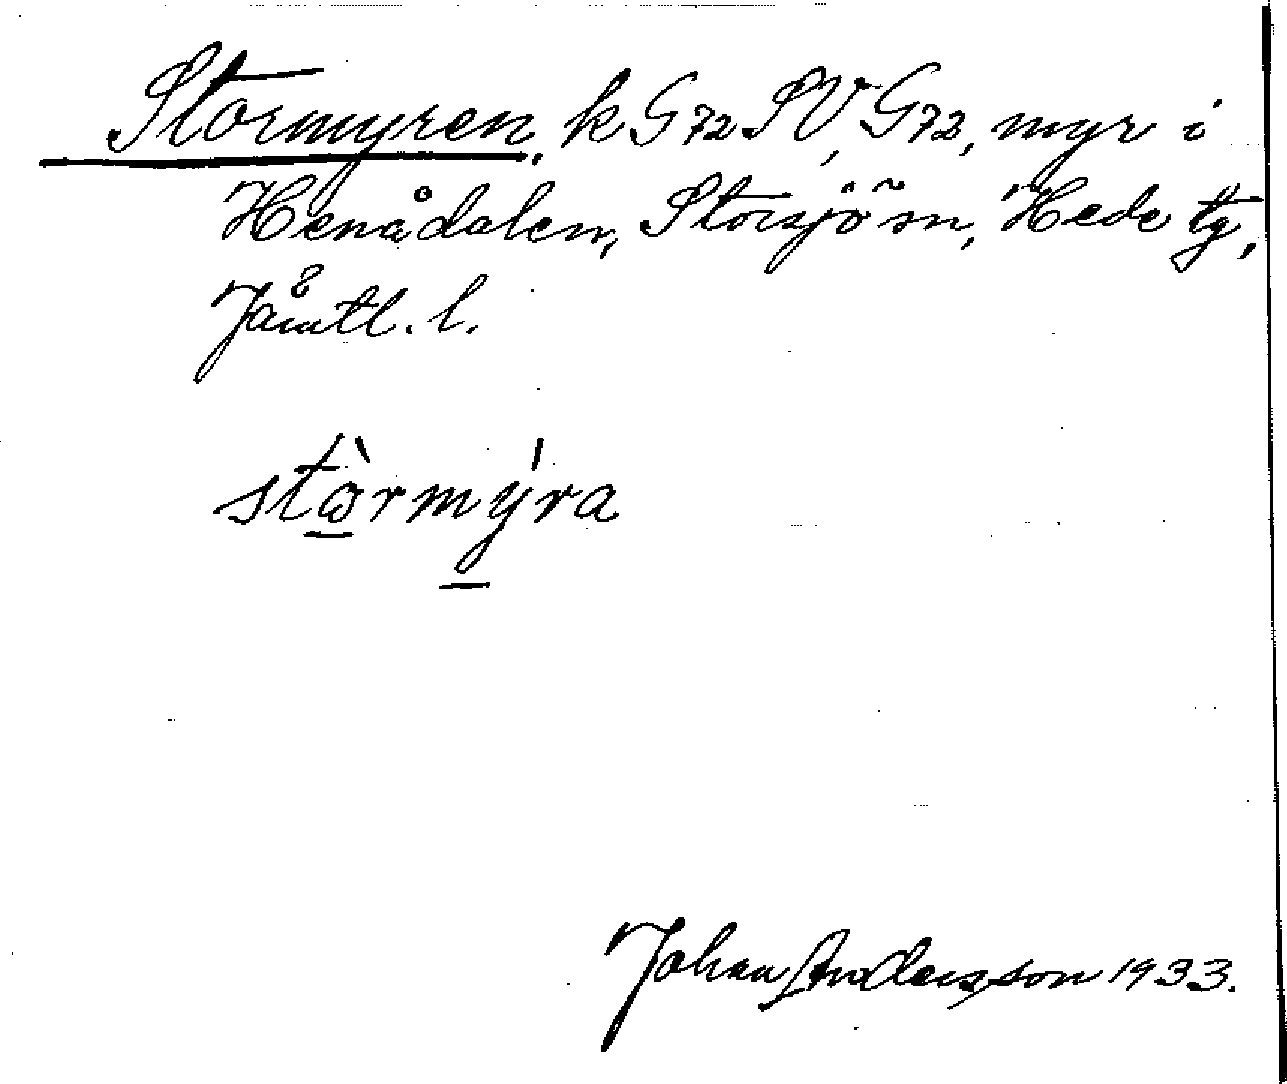 Stormyren, k G72SV, G73, myr i
Henådalen, Storsjö sn, Hede tg,
Jämtl. l.
stòrmýra
Johan Andersson 1933.